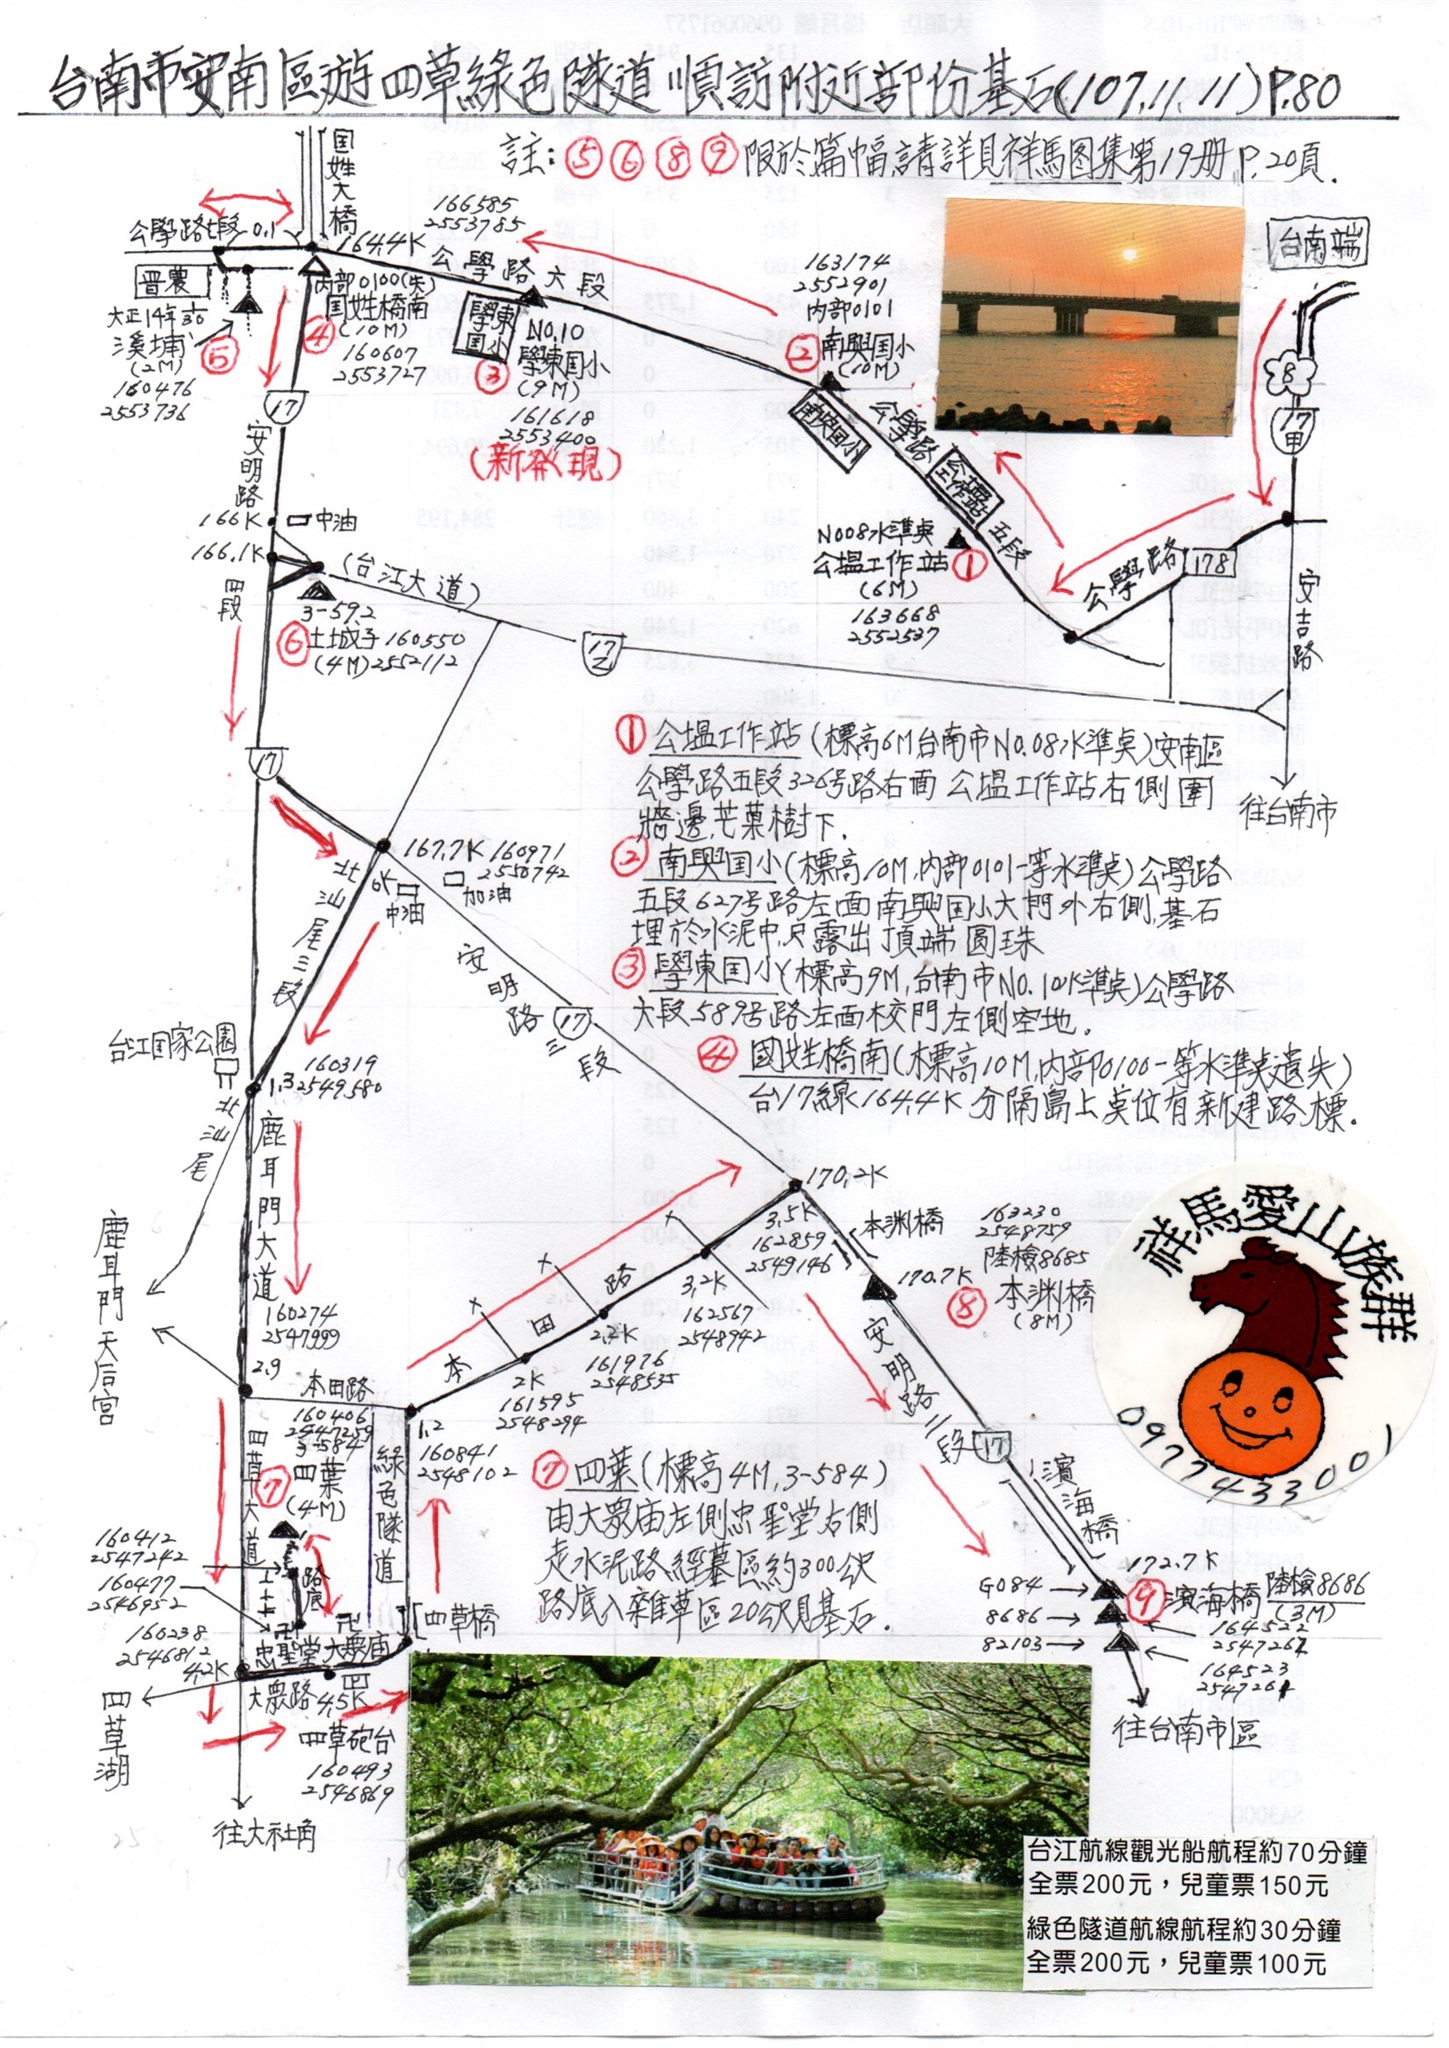 台南市安南區遊四草綠色隧道順訪附近部份基石(107.11.11)P.80
註:⑤⑥⑧⑨限於篇幅,請詳見祥馬图集第19册P.20頁.
国姓大橋
公學路七段
0.1
164.4K
166585
2553785
公學路六段
普農
大正14年
溪埔
(2M)
160476
2553736
⑤
內部0100(失)
国姓橋南
(10M)
160607
2553727
④
學東国小
NO.10
學東国小
(9M)
③
161618
2553400
(新發現)
163174
2552901
內部0101
②南興国小
(10M)
南興国小
公學路
公塭工作站
五段
NO08水準桌
公塭工作站
(6M)
①
163668
2552537
台南端
8
17甲
公學路
178
安吉路
往台南市
17
安明路
四段
166K
中油
166.1K
(台江大道)
3-592
⑥土城子160550
(4M)2552112
17乙
17
①公塭工作站(標高6M台南市NO.08水準桌)安南區
公學路五段326号路右面公塭工作站右側圍
牆邊,芒菓樹下.
②南興国小(標高10M,內部0101一等水準桌)公學路
五段627号路左面南興国小大門外右側,基石
埋於水泥中,只露出頂端圓珠
③學東国小(標高9M,台南市NO.10水準桌)公學路
六段589号路左面校門左側空地.
④國姓橋南(標高10M,內部0100一等水準桌遺失)
台17線164.4K分隔島上桌位有新建路標.
167.7K
160971
2550742
0K
中油
加油
北汕尾二段
安明路三段
17
台江国家公園
1.3
160319
2549580
北汕尾
鹿耳門大道
鹿耳門天后宮
160274
2547999
2.9
本田路
160406
2547259
3-584
⑦四葉
(4M)
四草大道
綠色隧道
本田路
1.2
160841
2548102
2K
161595
2548294
2.2K
161976
2548535
3.2K
162567
2548942
3.5K
162859
2549146
170.2K
本渊橋
170.7K
163230
2548759
陸檢8685
⑧本渊橋
(8M)
安明路二段
17
濱海橋
172.7K
G084
8686
82103
⑨濱海橋
陸檢8686
(3M)
164522
164523
往台南市區
祥馬愛山族群
0977433001
160412
2547242
160477
2546952
160238
2546812
4.2K
路底
忠聖堂
大衆庙
四草橋
大眾路
4.5K
四草砲台
160493
2546869
四草湖
往大社角
⑦四葉(標高4M,3-584)
由大眾庙左側忠聖堂右側
走水泥路經墓區約300公尺
路底入雜草區20公尺見基石.
台江航線觀光船航程約70分鐘
全票200元，兒童票150元
綠色隧道航線航程約30分鐘
全票200元，兒童票100元